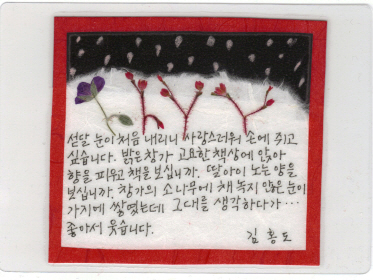 섣달 눈이 처음 내리니 사랑스러워 손에 쥐고
싶습니다. 밝은 창가 고요한 책상에 앉아
향을 피우고 책을 보십니까. 딸아이 노는 양을
보십니까. 창가의 소나무에 채 녹지 않은 눈이
가지에 쌓였는데 그대를 생각하다가…
좋아서 웃습니다.
김홍도